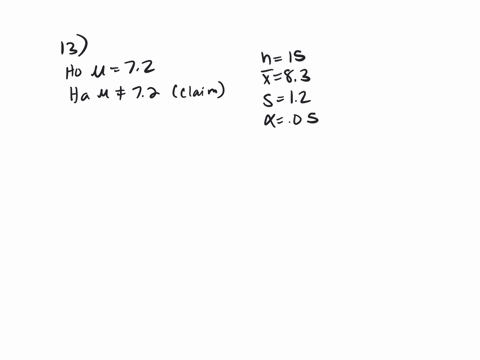 13)
Ho μ = 7.2
Ha μ ≠ 7.2 (claim)
n = 15
x̄ = 8.3
s = 1.2
α = .05